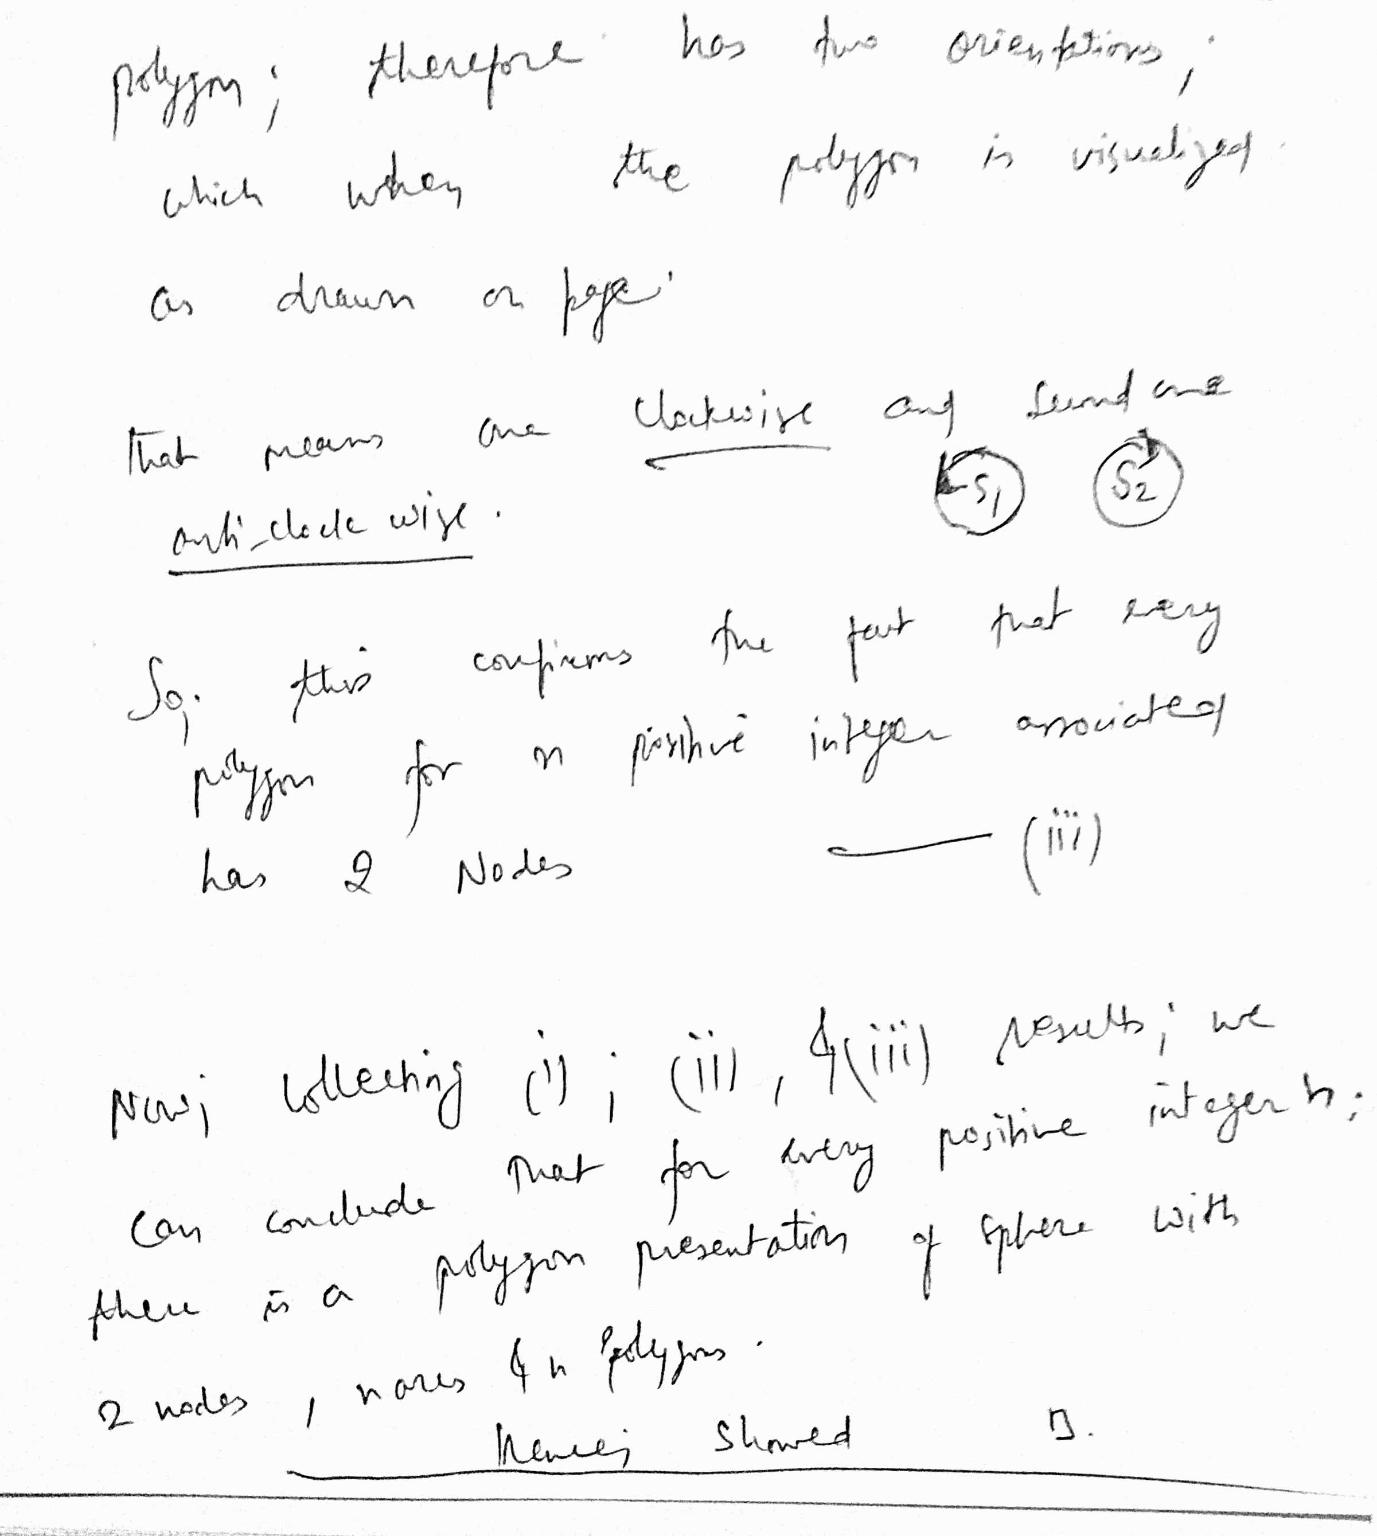 polygon; therefore has two orientations;
which when the polygon is visualized
as drawn on page.
That means one clockwise and second one
anti-clock wise. S1 S2
So; this confirms the fact that every
polygon for n positive integer associated
has 2 Nodes — (iii)
Now; collecting (i); (ii), & (iii) results; we
can conclude that for every positive integer n;
there is a polygon presentation of sphere with
2 nodes, n arcs & n Polygons.
Hence; showed